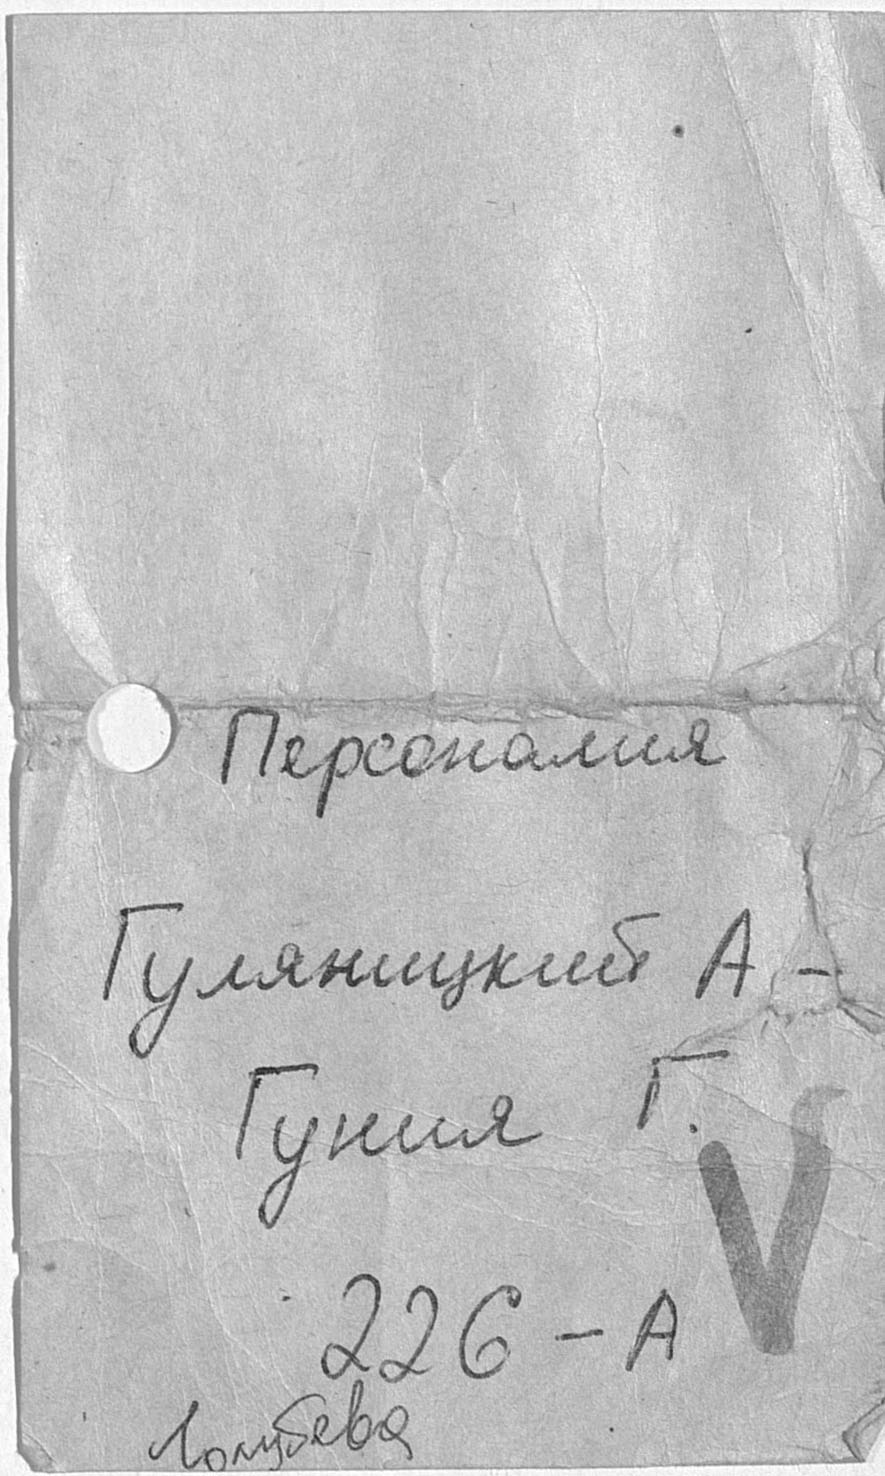 Персоналия
Гуляницкий А -
Гуния Г.
226 - А
Голубева